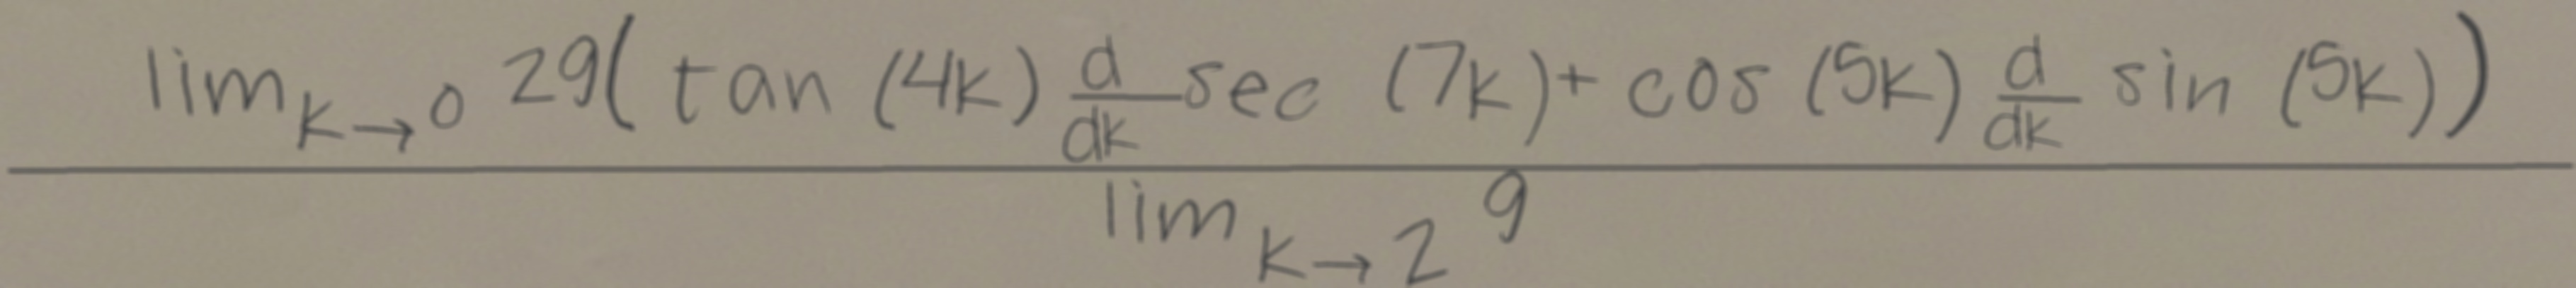 \frac{\lim_{k \to 0} 29\left(\tan(4k) \frac{d}{dk} \sec(7k) + \cos(5k) \frac{d}{dk} \sin(5k)\right)}{\lim_{k \to 2} 9}